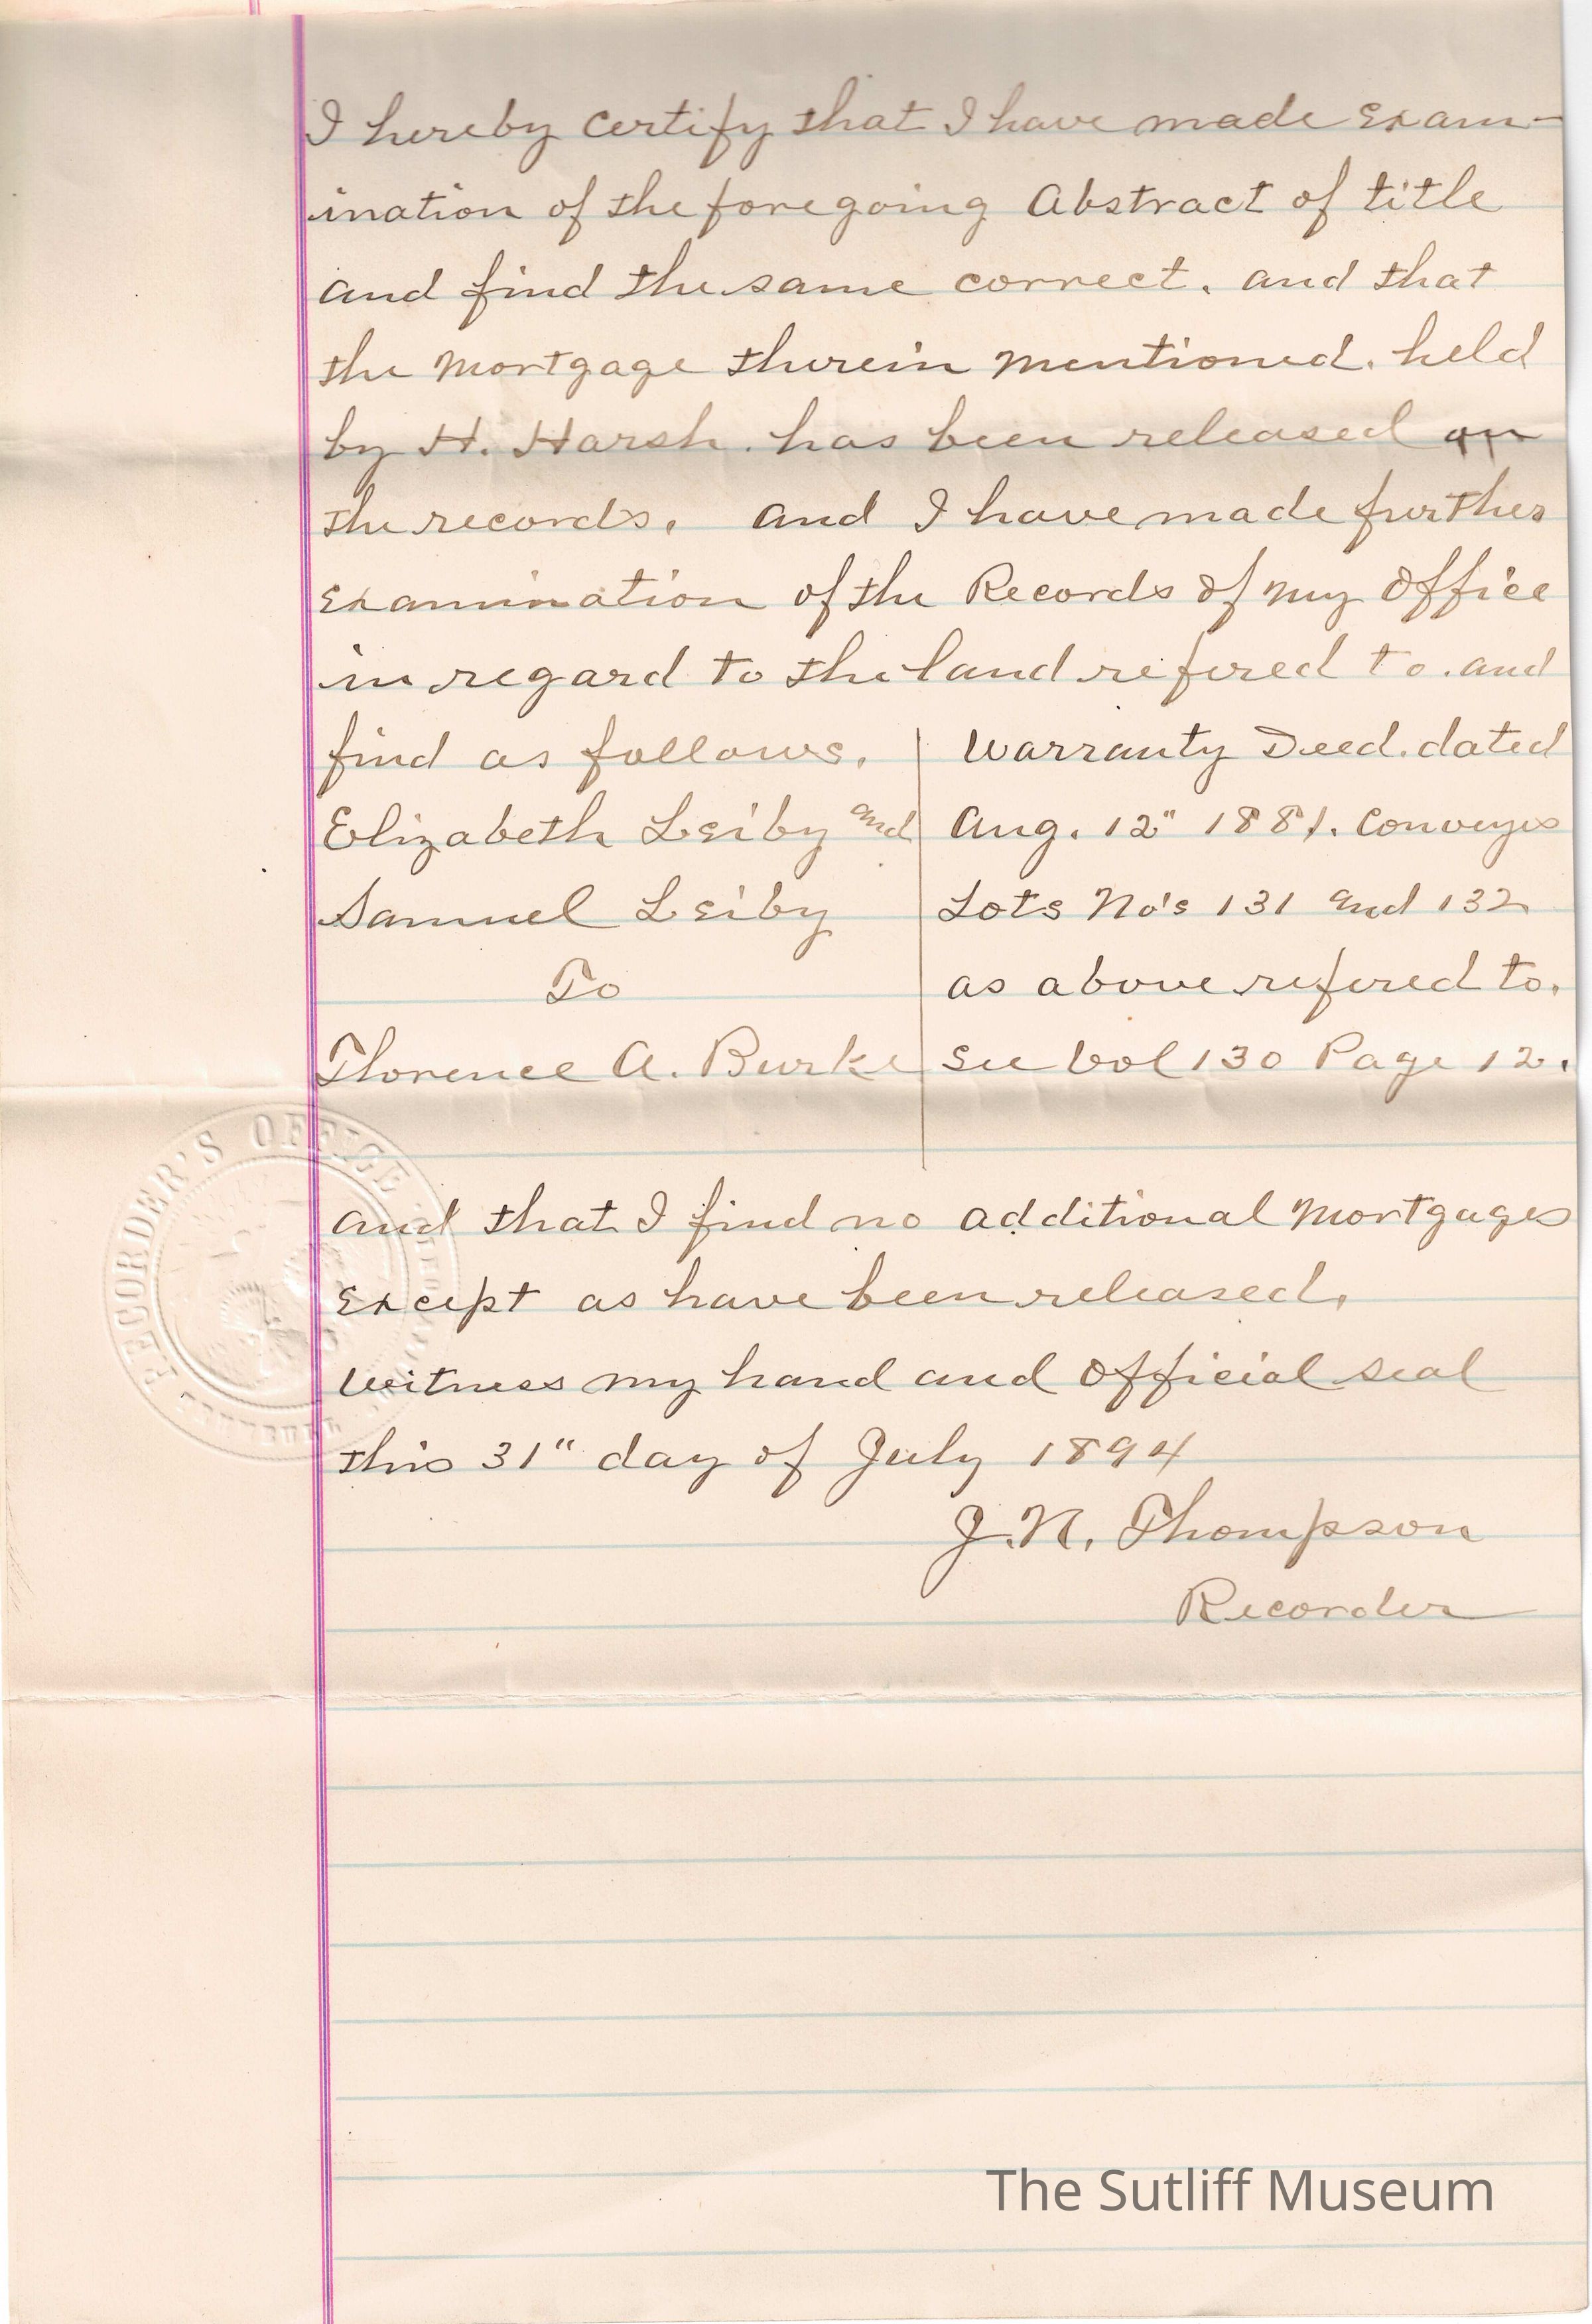 I hereby Certify that I have made Exam-
ination of the foregoing Abstract of title
and find the same correct. and that
the Mortgage therein Mentioned. held
by H. Harsh. has been released on
the records. and I have made further
Examination of the Records of my Office
in regard to the land refered to. and
find as follows.
Elizabeth Leiby and
Samuel Leiby
To
Florence A. Burke
Warranty Deed. dated
Aug. 12" 1881. Conveyes
Lots No's 131 and 132
as above refered to.
See Vol 130 Page 12.
and that I find no additional Mortgages
Except as have been released.
Witness my hand and Official seal
this 31" day of July 1894
J. N. Thompson
Recorder
RECORDER'S OFFICE
The Sutliff Museum